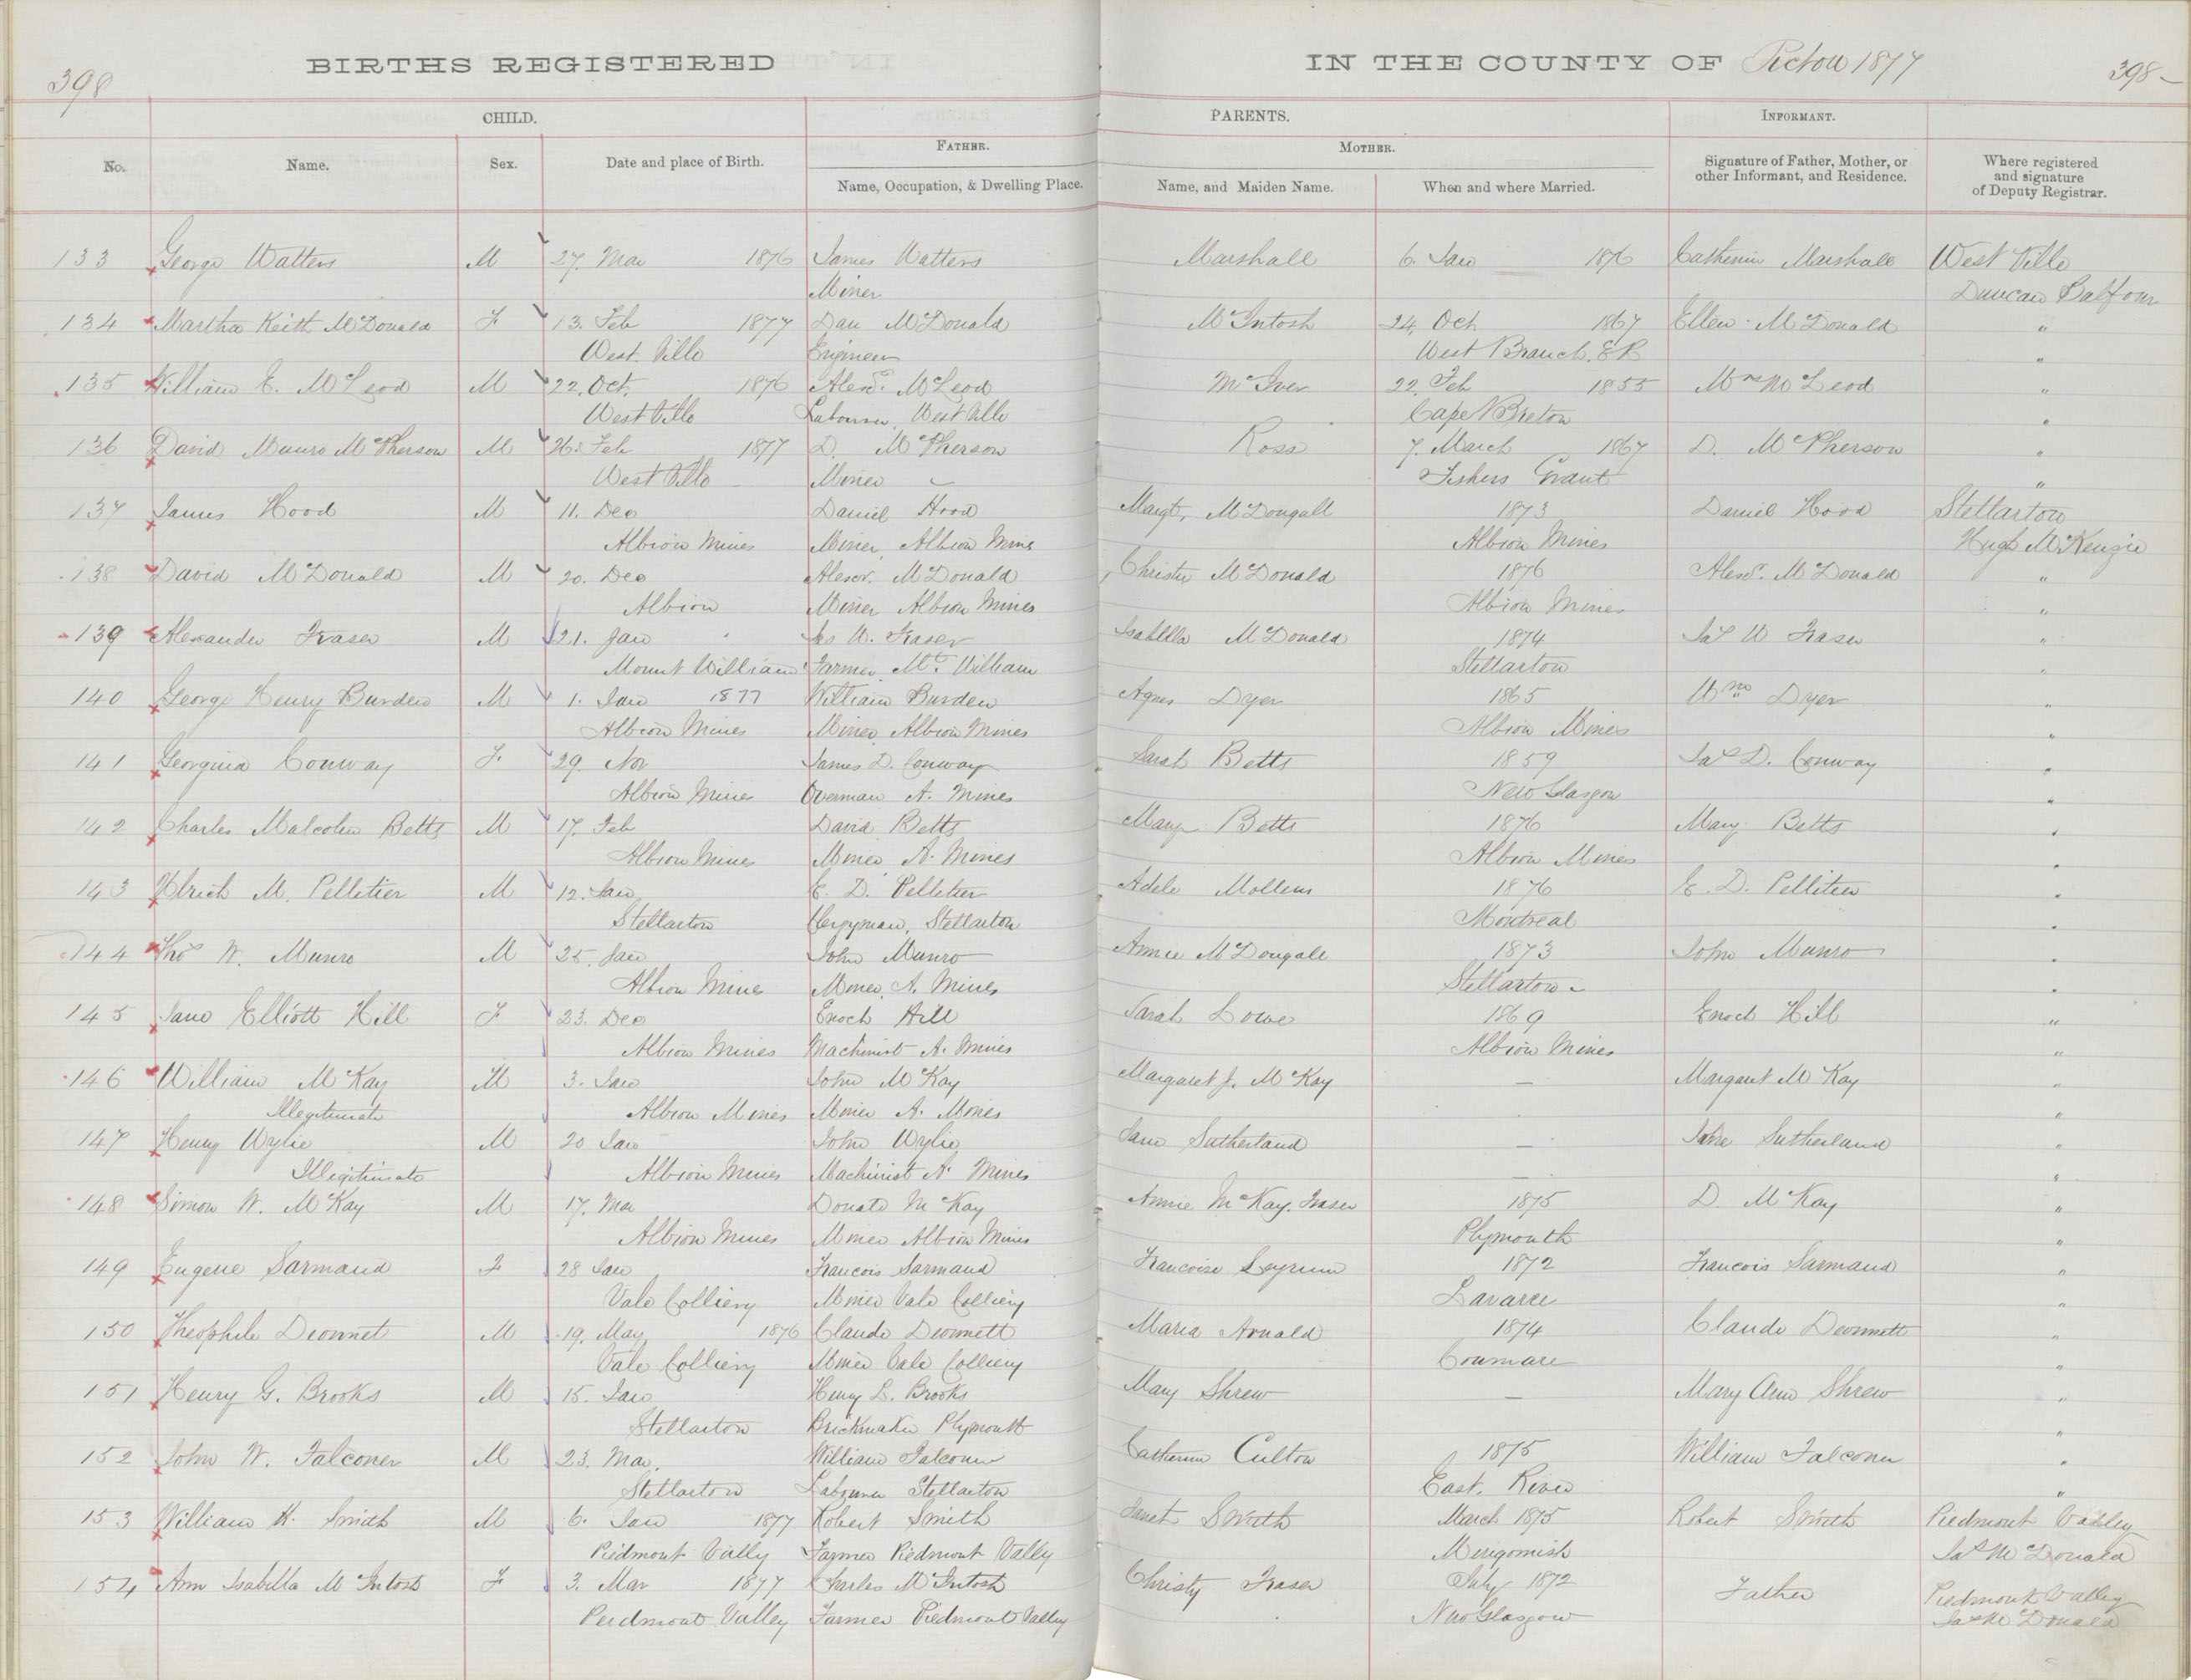 398
BIRTHS REGISTERED IN THE COUNTY OF Pictou 1877
398
CHILD. PARENTS. INFORMANT.
FATHER. MOTHER.
No. Name. Sex. Date and place of Birth. Name, Occupation, & Dwelling Place. Name, and Maiden Name. When and where Married. Signature of Father, Mother, or other Informant, and Residence. Where registered and signature of Deputy Registrar.
133 George Watters M 27. Mar 1876 James Watters Marshall 6. Jan 1876 Catherine Marshall West Ville
Miner Duncan Balfour
134 Martha Keith McDonald F 13. Feb 1877 Dan McDonald McIntosh 24. Oct 1867 Ellen McDonald "
West Ville Engineer West Branch, E R "
135 William E. McLeod M 22. Oct. 1876 Alexr. McLeod McIver 22. Feb 1855 McLeod "
West Ville Labourer, West Ville Cape Breton "
136 David Munro McPherson M 26. Feb 1877 D. McPherson Ross 7. March 1867 D. McPherson "
West Ville Miner Fishers Grant "
137 James Hood M 11. Dec Daniel Hood Margt. McDougall 1873 Daniel Hood Stellarton
Albion Mines Miner, Albion Mines Albion Mines Hugh McKenzie
138 David McDonald M 20. Dec Alexr. McDonald Christie McDonald 1876 Alexr. McDonald "
Albion Miner Albion Mines Albion Mines "
139 Alexander Fraser M 21. Jan Jas W. Fraser Isabella McDonald 1874 Jas W Fraser "
Mount William Farmer, Mt. William Stellarton "
140 George Henry Burden M 1. Jan 1877 William Burden Agnes Dyer 1865 Wm Dyer "
Albion Mines Miner Albion Mines Albion Mines "
141 Georgina Conway F. 29. Nov James D. Conway Sarah Betts 1859 Jas D. Conway "
Albion Mines Overman A. Mines New Glasgow "
142 Charles Malcolm Betts M 17. Feb David Betts Mary Betts 1876 Mary Betts "
Albion Mines Miner A. Mines Albion Mines "
143 Ulrich M. Pelletier M 12. Jan E. D. Pelletier Adele 1876 E. D. Pelletier "
Stellarton Clergyman, Stellarton Montreal "
144 Thos W. Munro M 25. Jan John Munro Annie McDougall 1873 John Munro "
Albion Mines Miner, A. Mines Stellarton "
145 Jane Elliott Hill F 23. Dec Enoch Hill Sarah Lowe 1869 Enoch Hill "
Albion Mines Machinist A. Mines Albion Mines "
146 William McKay M 3. Jan John McKay Margaret J. McKay — Margaret McKay "
Illegitimate Albion Mines Miner A. Mines "
147 Henry Wylie M 20 Jan John Wylie Jane Sutherland — Jane Sutherland "
Illegitimate Albion Mines Machinist A. Mines — "
148 Simon W. McKay M 17. Mar Donald McKay Annie McKay. Fraser 1875 D. McKay "
Albion Mines Miner Albion Mines Plymouth "
149 Eugene Sarmand F 28 Jan Francois Sarmand Francoise 1872 Francois Sarmand "
Vale Colliery Miner Vale Colliery "
150 Theophile Dionnet M 19. May 1876 Claude Dionnett Maria Arnald 1874 Claude Dionnett "
Vale Colliery Miner Vale Colliery "
151 Henry G. Brooks M 15. Jan Henry L. Brooks Mary Shrew — Mary Ann Shrew "
Stellarton Brickmaker Plymouth "
152 John W. Falconer M 23. Mar. William Falconer Catherine Culton 1875 William Falconer "
Stellarton Labourer Stellarton East River "
153 William H. Smith M 6. Jan 1877 Robert Smith Janet Smith March 1875 Robert Smith Piedmont Valley
Piedmont Vally Farmer Piedmont Vally Merigomish Jas McDonald
154 Ann Isabella McIntosh F 3. Mar 1877 Charles McIntosh Christy Fraser July 1872 Father Piedmont Valley
Peidmont Valley Farmer Piedmont Valley New Glasgow Jas McDonald